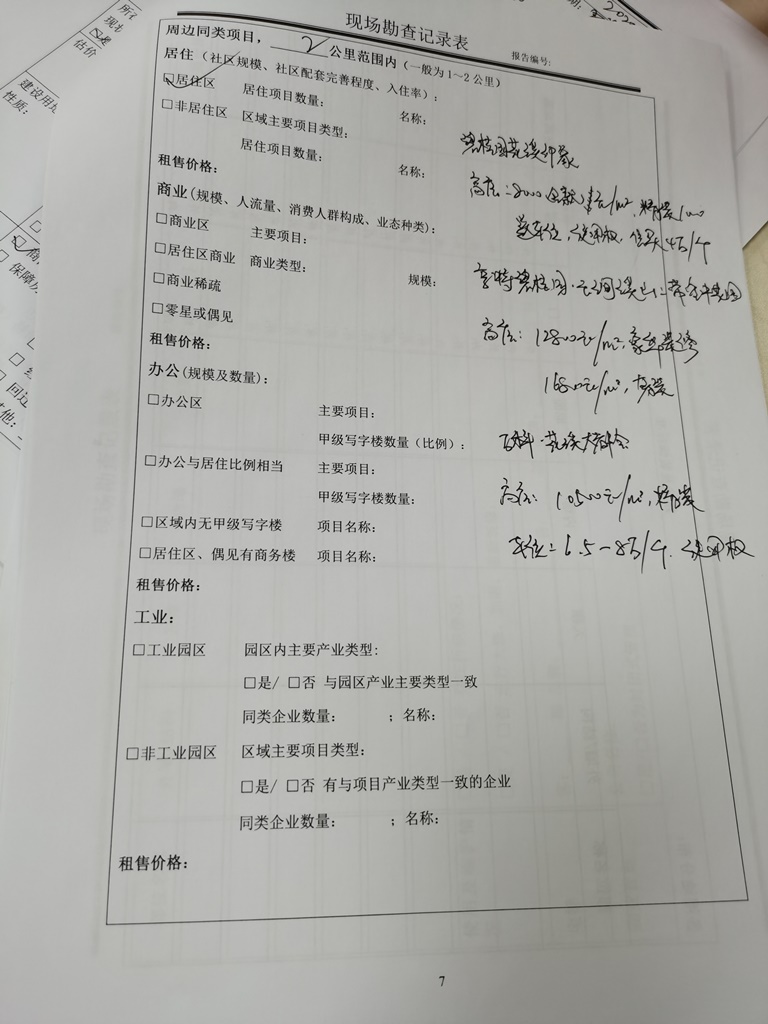 现场勘查记录表
报告编号:
周边同类项目，2公里范围内（一般为1~2公里）
居住（社区规模、社区配套完善程度、入住率）：
☑居住区 居住项目数量： 名称：
□非居住区 区域主要项目类型：
居住项目数量： 名称：
碧桂园花溪印象
租售价格：
高层：8000
商业(规模、人流量、消费人群构成、业态种类)：
车位，使用权，4万/个
□商业区 主要项目：
□居住区商业 商业类型： 规模：
碧桂园·
□商业稀疏
□零星或偶见
高层：12800元/m²，豪华装修
租售价格：
办公(规模及数量)：
元/m²，
□办公区 主要项目：
甲级写字楼数量（比例）：
·花溪大都会
□办公与居住比例相当 主要项目：
甲级写字楼数量：
高层：10500元/m²，精装
□区域内无甲级写字楼 项目名称：
车位：6.5-8万/个，使用权
□居住区、偶见有商务楼 项目名称：
租售价格：
工业：
□工业园区 园区内主要产业类型:
□是/ □否 与园区产业主要类型一致
同类企业数量： ；名称：
□非工业园区 区域主要项目类型：
□是/ □否 有与项目产业类型一致的企业
同类企业数量： ；名称：
租售价格：
7
所在
现状
估价
建设用地
性质：
保障房
回迁
其他：